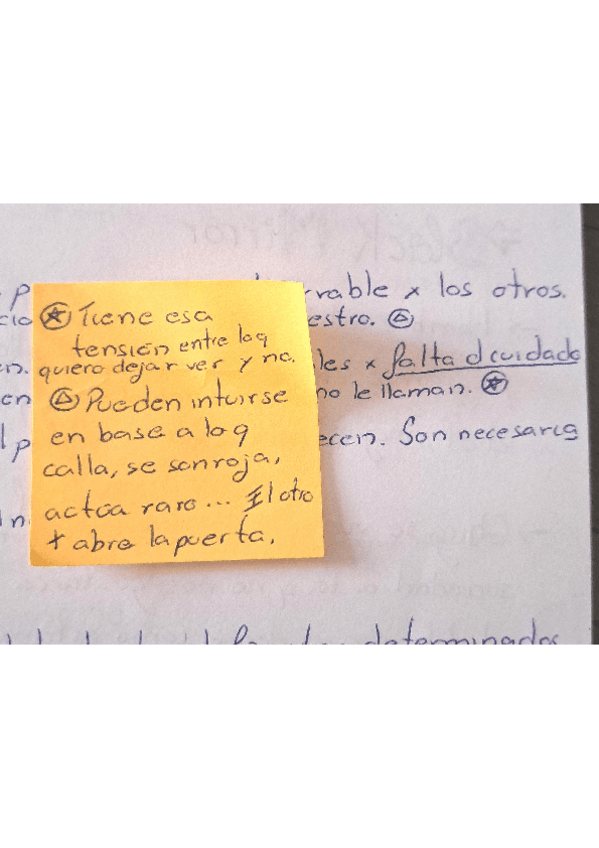 rrable x los otros.
estro.
les x falta d cuidado
no le llaman.
ecen. Son necesarias
Tiene esa
tensión entre lo q
quiero dejar ver y no.
Pueden intuirse
en base a lo q
calla, se sonroja,
actúa raro... El otro
+ abre la puerta.
determinados